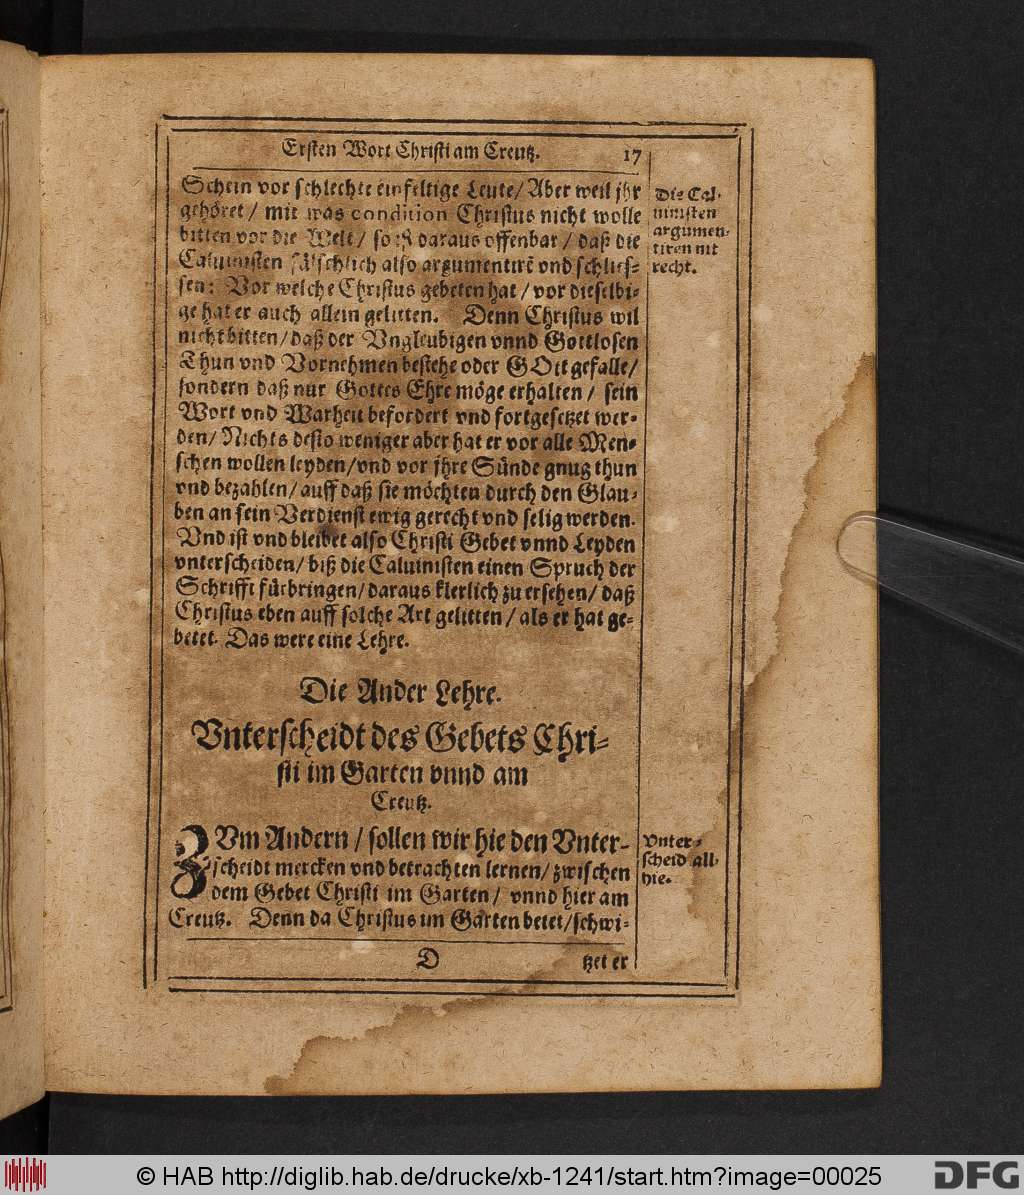 Ersten Wort Christi am Creutz. 17
Schein vor schlechte einfeltige Leute / Aber weil jhr
gehöret / mit was condition Christus nicht wolle
bitten vor die Welt / so ist daraus offenbar / daß die
Caluinisten fälschlich also argumentirē vnd schlies-
sen: Vor welche Christus gebeten hat / vor dieselbi-
ge hat er auch allein gelitten. Denn Christus wil
nicht bitten / daß der Vngleubigen vnnd Gottlosen
Thun vnd Vornehmen bestehe oder GOtt gefalle /
sondern daß nur Gottes Ehre möge erhalten / sein
Wort vnd Warheit befordert vnd fortgesetzet wer-
den / Nichts desto weniger aber hat er vor alle Men-
schen wollen leyden / vnd vor jhre Sünde gnug thun
vnd bezahlen / auff daß sie möchten durch den Glau-
ben an sein Verdienst ewig gerecht vnd selig werden.
Vnd ist vnd bleibet also Christi Gebet vnnd Leyden
vnterscheiden / biß die Caluinisten einen Spruch der
Schrifft fürbringen / daraus klerlich zu ersehen / daß
Christus eben auff solche Art gelitten / als er hat ge-
betet. Das were eine Lehre.
Die Cal-
uinisten
argumen-
tiren nit
recht.
Die Ander Lehre.
Vnterscheidt des Gebets Chri-
sti im Garten vnnd am
Creutz.
ZVm Andern / sollen wir hie den Vnter-
scheidt mercken vnd betrachten lernen / zwischen
dem Gebet Christi im Garten / vnnd hier am
Creutz. Denn da Christus im Garten betet / schwi-
Vnter-
scheid all-
hie.
D tzet er
© HAB http://diglib.hab.de/drucke/xb-1241/start.htm?image=00025
DFG